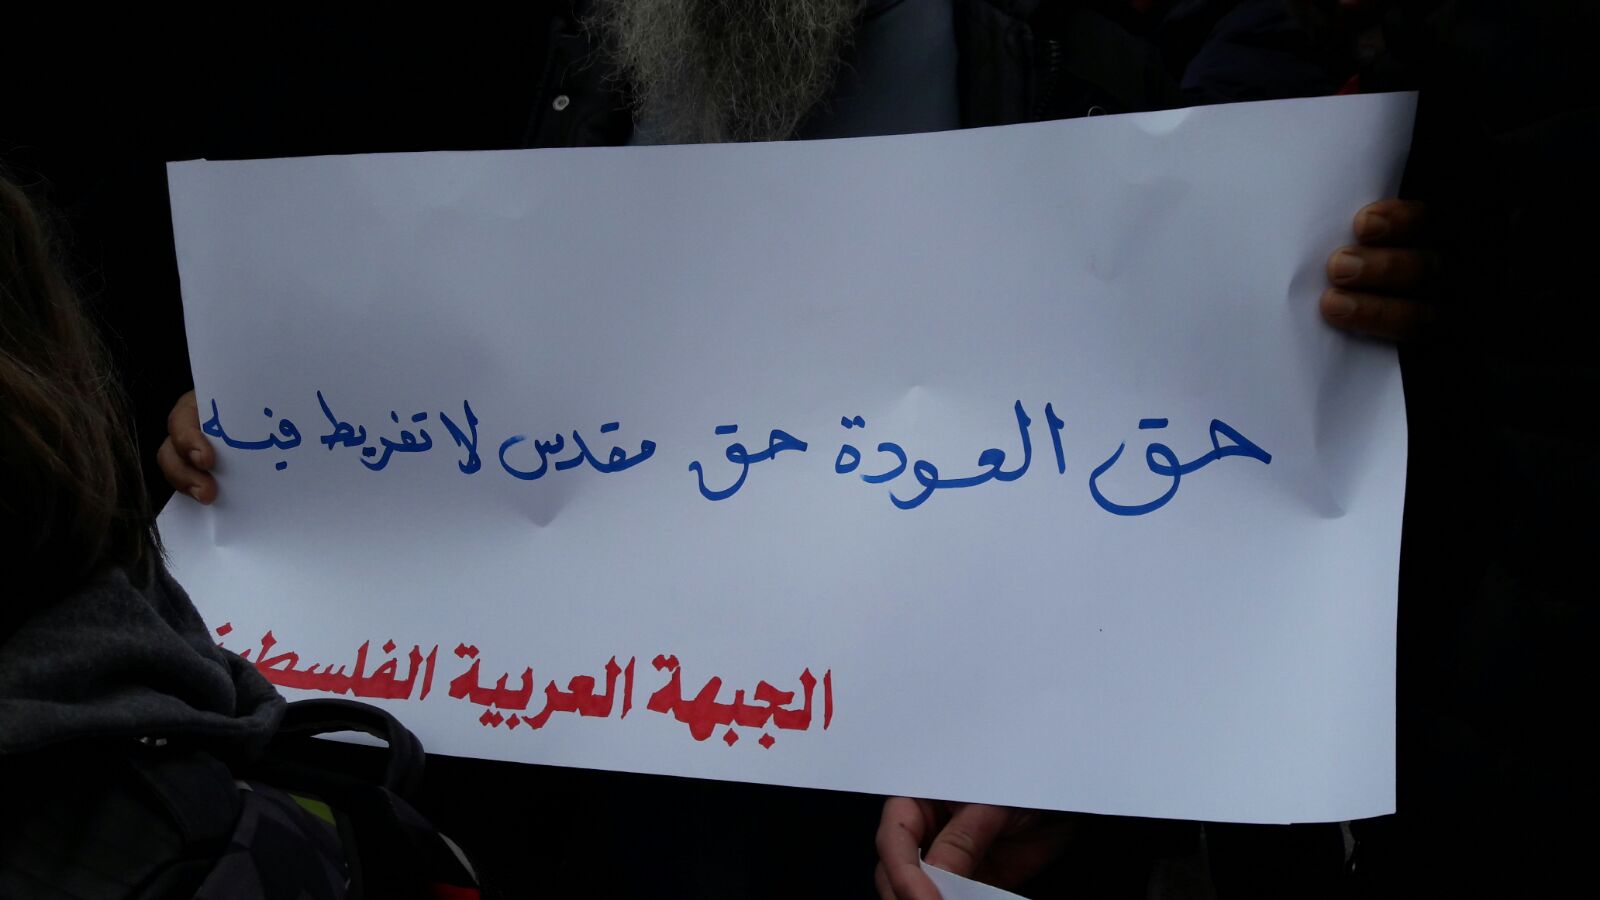 حق العودة حق مقدس لا تفريط فيه
الجبهة العربية